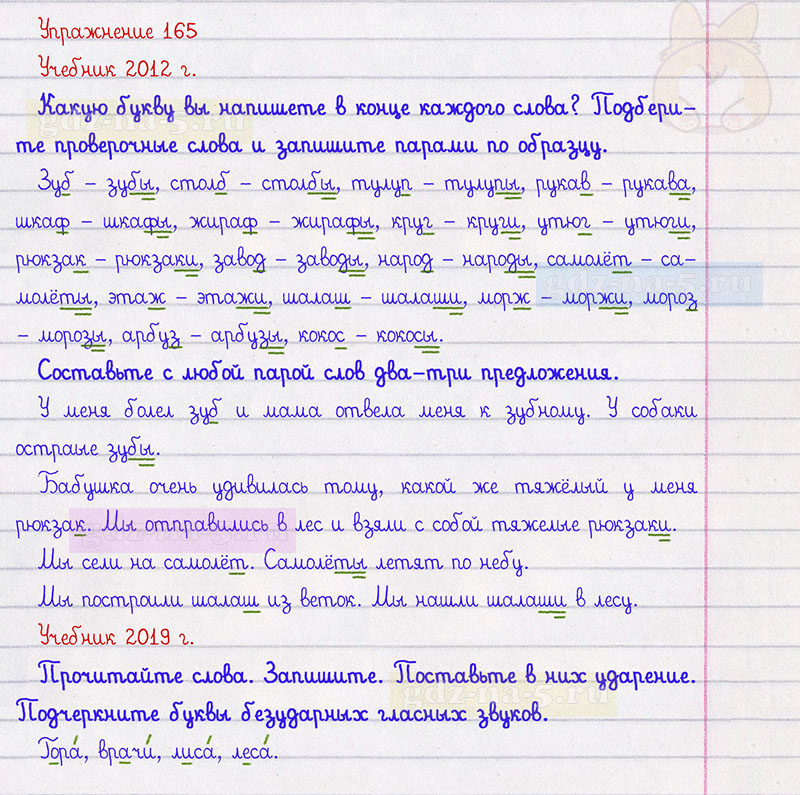 Упражнение 165
Учебник 2012 г.
Какую букву вы напишете в конце каждого слова? Подбери-
те проверочные слова и запишите парами по образцу.
Зуб – зубы, столб – столбы, тулуп – тулупы, рукав – рукава,
шкаф – шкафы, жираф – жирафы, круг – круги, утюг – утюги,
рюкзак – рюкзаки, завод – заводы, народ – народы, самолёт – са-
молёты, этаж – этажи, шалаш – шалаши, морж – моржи, мороз
– морозы, арбуз – арбузы, кокос – кокосы.
Составьте с любой парой слов два-три предложения.
У меня болел зуб и мама отвела меня к зубному. У собаки
остраые зубы.
Бабушка очень удивилась тому, какой же тяжёлый у меня
рюкзак. Мы отправились в лес и взяли с собой тяжелые рюкзаки.
Мы сели на самолёт. Самолёты летят по небу.
Мы построили шалаш из веток. Мы нашли шалаши в лесу.
Учебник 2019 г.
Прочитайте слова. Запишите. Поставьте в них ударение.
Подчеркните буквы безударных гласных звуков.
Гора́, врачи́, лиса́, леса́.
gdz-na-5.ru
gdz-na-5.ru
gdz-na-5.ru
gdz-na-5.ru